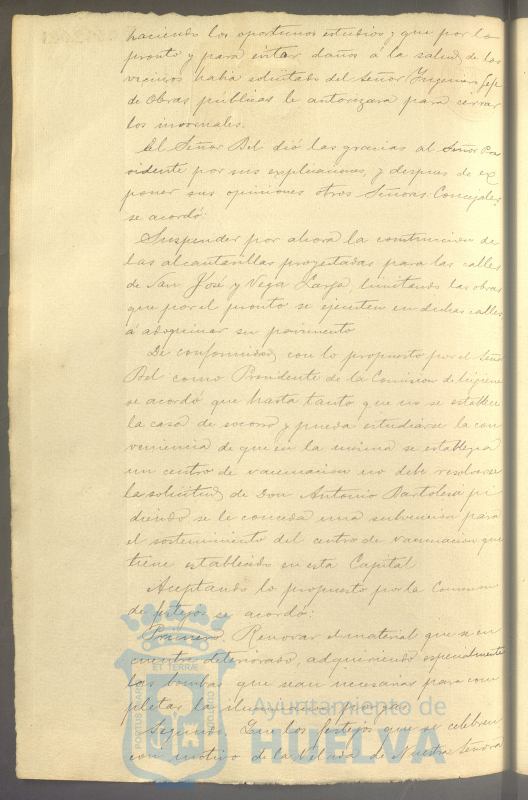 haciendo los oportunos estudios y que por lo
pronto y para evitar daños á la salud de los
vecinos habia solicitado del Señor Ingeniero Gefe
de Obras públicas le autorizara para cerrar
los imornales.
El Señor Bel dió las gracias al Señor Pre
sidente por sus esplicaciones, y despues de ex
poner sus opiniones otros Señores Concejales,
se acordó:
Suspender por ahora la construccion de
las alcantarillas proyectadas para las calles
de San José y Vega Larga, limitando las obras
que por el pronto se ejecuten en dichas calles
á adoquinar su pavimento
De conformidad con lo propuesto por el Señor
Bel como Presidente de la Comision de higiene
se acordó que hasta tanto que no se establece
la casa de socorro y pueda estudiarse la con
veniencia de que en la misma se establezca
un centro de vacunacion no debe resolverse
la solicitud de Don Antonio Bartolesi pi
diendo se le conceda una subvencion para
el sostenimiento del centro de vacunacion que
tiene establecido en esta Capital
Aceptando lo propuesto por la Comision
de festejos se acordó:
Primero. Renovar el material que se en
cuentra deteriorado, adquiriendo especialmente
las bombas que sean necesarias para com
pletar la iluminacion
Segundo. En los festejos que se celebren
con motivo de la Velada de Nuestra Señora
PORTUS MARIS
ET TERRÆ
CUSTODIA
Ayuntamiento de
HUELVA